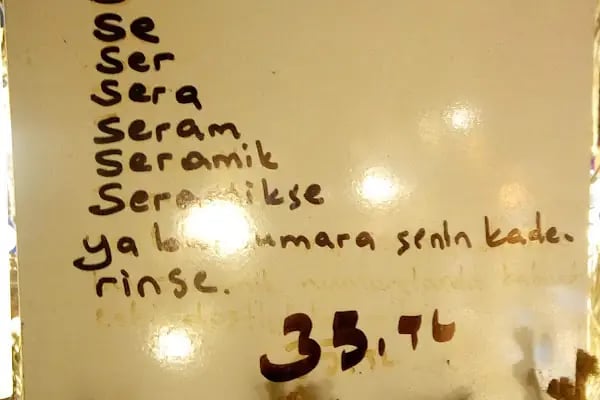 Se
Ser
Sera
Seram
Seramik
Seramikse
ya umara senin kade.
rinse.
35. TL